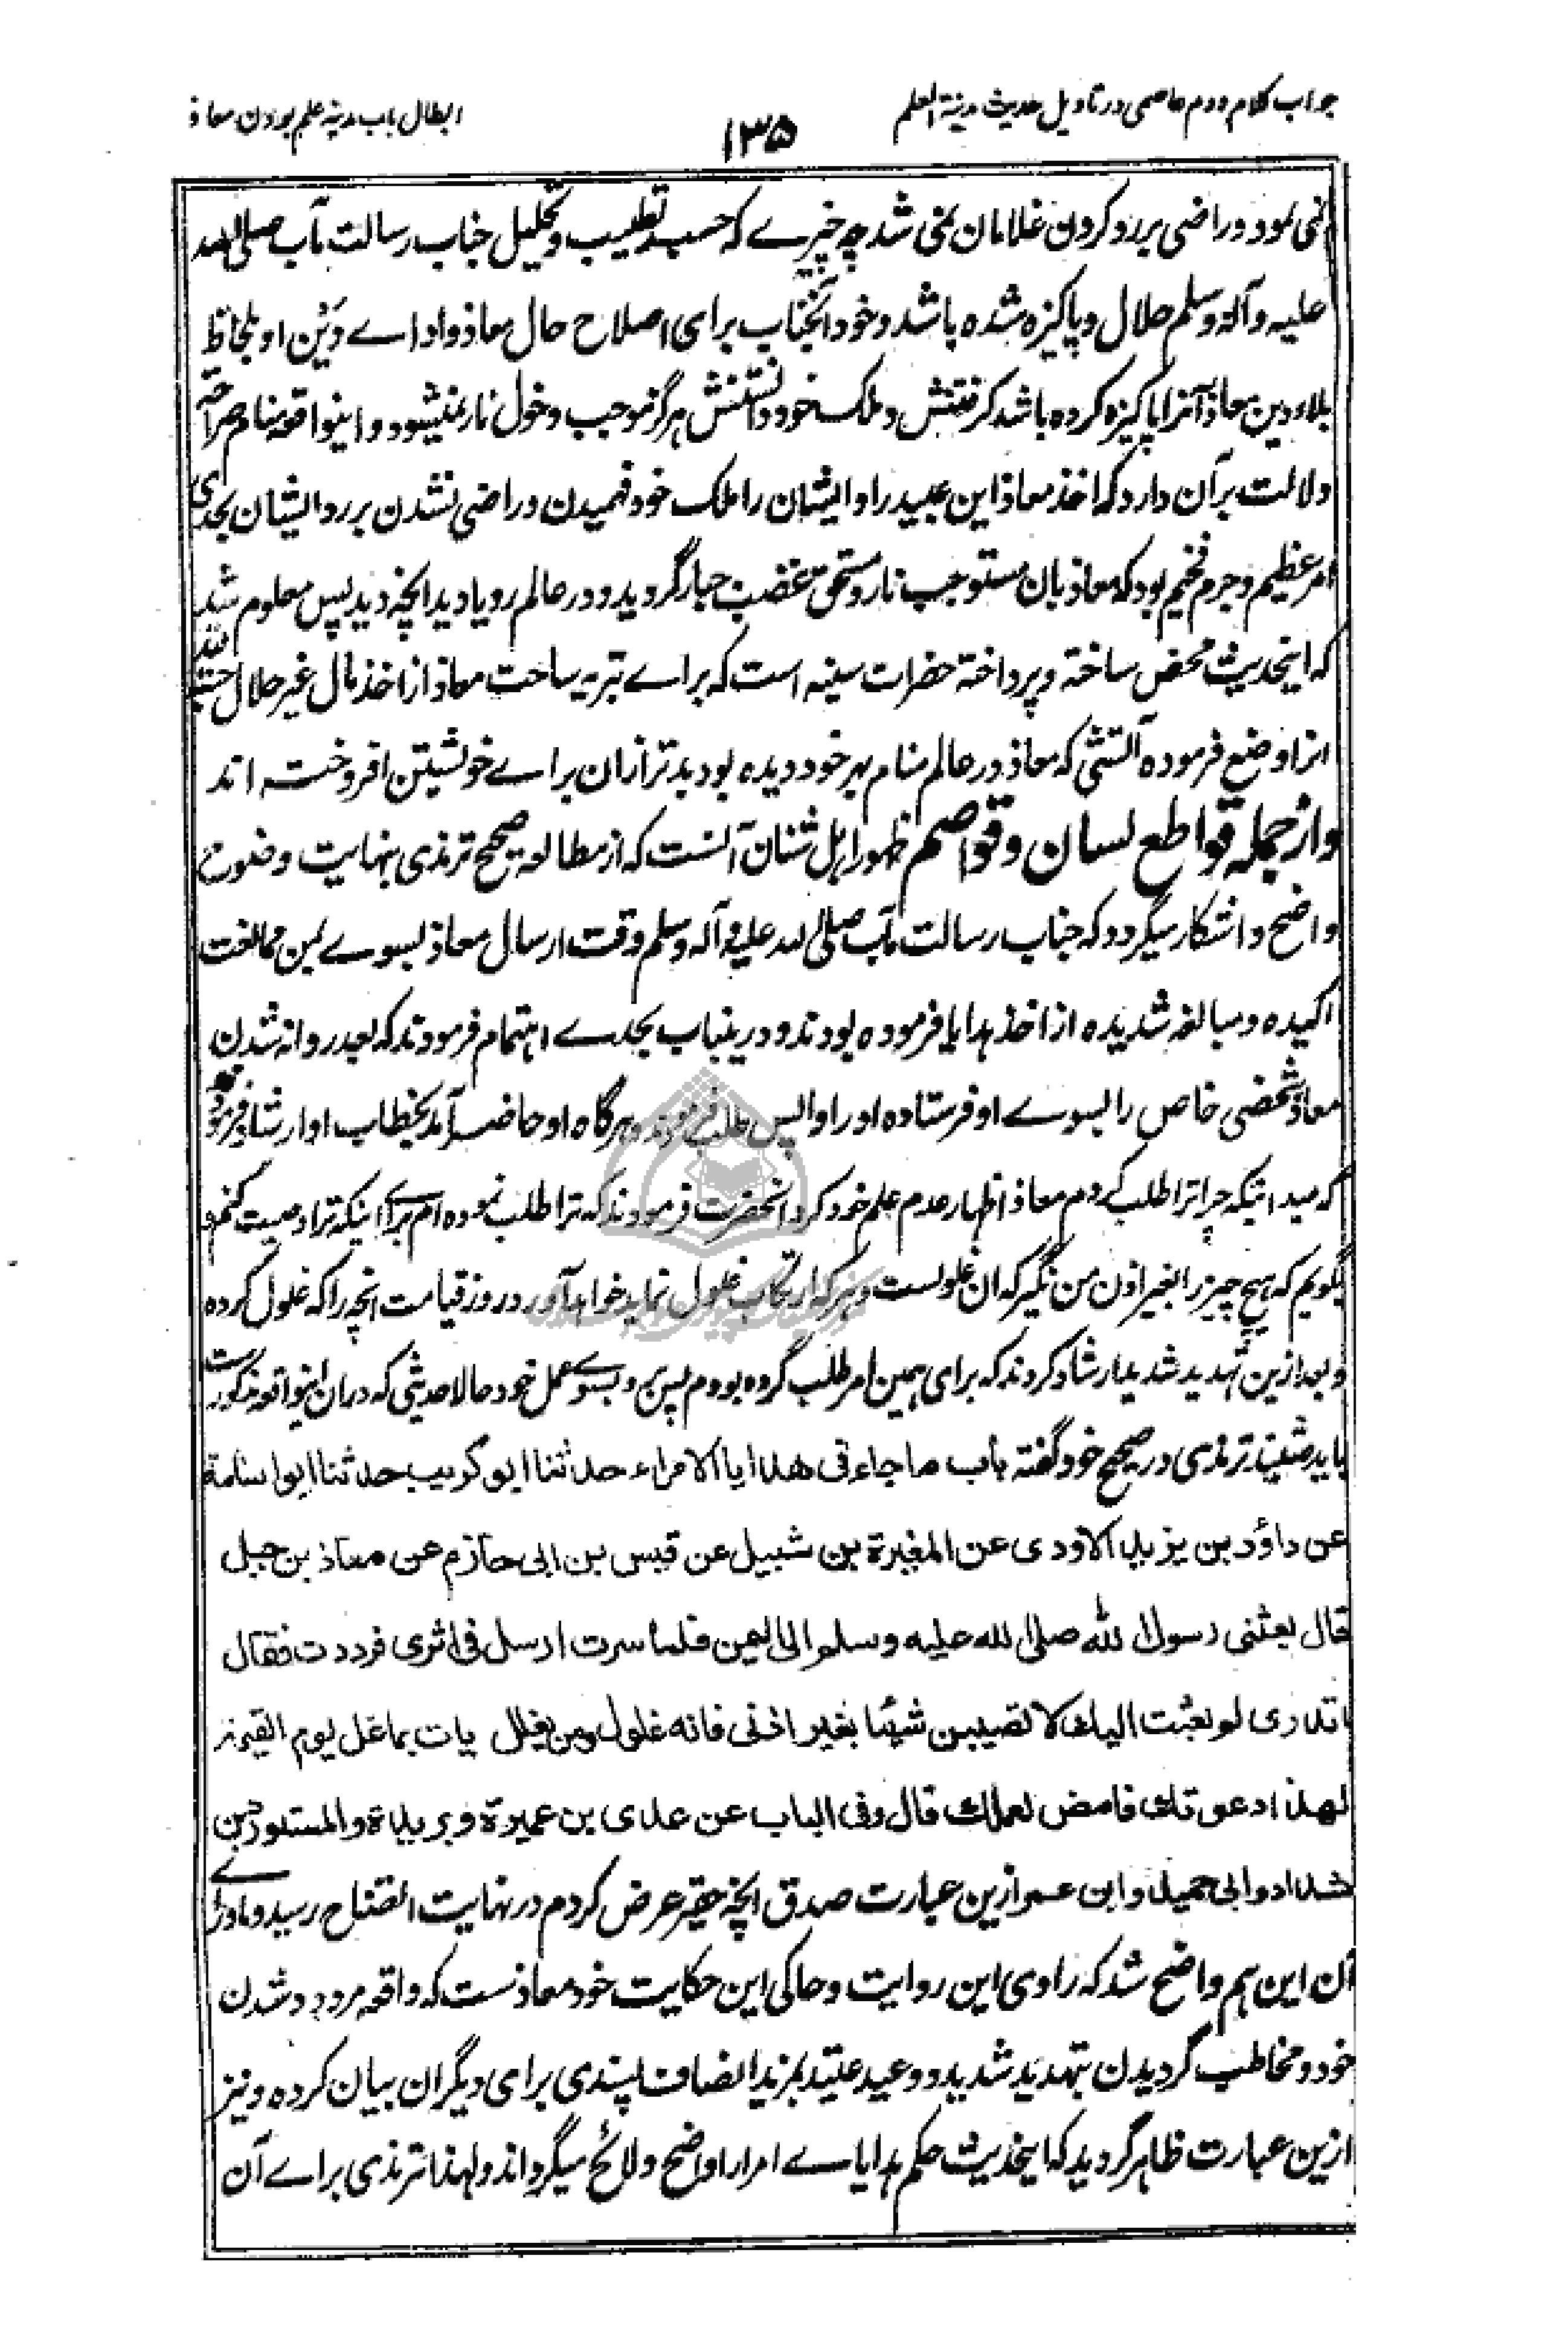 جواب کلام دوم عاصمی در تاویل حدیث مدینة العلم
۱۳۵
ابطال باب مدینه علم بودن معاذ
نمی نمود و راضی بر رد کردن غلامان نمی شد چه چیزے که حسب تطییب و تحلیل جناب رسالت مآب صلی الله
علیه و آله و سلم حلال و پاکیزه شده باشد و خود آنجناب برای اصلاح حال معاذ و اداے دین او بلحاظ
بلاء دین معاذ آنرا پاکیزه کرده باشد گرفتنش و ملک خود دانستنش هرگز موجب دخول نار نمیشود و اینواقعه منام صراحة
دلالت بر آن دارد که اخذ معاذ این عبید را و ایشان را ملک خود فهمیدن و راضی نشدن برد ایشان بحدی
امر عظیم و جرم فخیم بود که معاذ بان مستوجب نار و مستحق غضب جبار گردید و در عالم رویا دید انچه دید پس معلوم شد
که اینحدیث محض ساخته و پرداخته حضرات سنیه است که براے تبریه ساحت معاذ از اخذ مال غیر حلال
از او وضع فرموده آتشی که معاذ در عالم منام بهر خود دیده بود بدتر ازان براے خویشتن افروخته اند
و از جمله قواطع لسان و قواصم ظهور اهل شنان آنست که از مطالعه صحیح ترمذی بنهایت وضوح
واضح و اشکار میگردد که جناب رسالت مآب صلی الله علیه و آله و سلم وقت ارسال معاذ بسوے یمن ممانعت
اکیده و مبالغه شدیده از اخذ هدایا فرموده بودند و درینباب بحدے اهتمام فرمودند که بعد روانه شدن
معاذ شخصی خاص را بسوے او فرستاده او را واپس طلب فرمودند و هر گاه او حاضر آمد بخطاب او ارشاد فرمود
که میدانیکه چرا ترا طلب کردم معاذ اظهار عدم علم خود کرد انحضرت فرمودند که ترا طلب نموده ام براے اینکه ترا وصیت کنم و
بگویم که هیچ چیز را بغیر اذن من نگیر که ان غلولست و هر که ارتکاب غلول نماید خواهد آورد روز قیامت انچه را که غلول کرده
و بعد ازین تهدید شدید ارشاد کردند که برای همین امر طلب کرده بودم پس برو بسوے عمل خود حالا حدیثی که دران اینواقعه مذکورست
باید شنید ترمذی در صحیح خود گفته باب ما جاء فی هدایا الامراء حدثنا ابو کریب حدثنا ابو اسامة
عن داؤد بن یزید الاودی عن المغیرة بن شبیل عن قیس بن ابی حازم عن معاذ بن جبل
قال بعثنی رسول الله صلی الله علیه و سلم الی الیمن فلما سرت ارسل فی اثری فرددت فقال
اتدری لم بعثت الیک لا تصیبن شیئا بغیر اذنی فانه غلول و من یغلل یات بما غل یوم القیمة
لهذا دعوتک فامض لعملک قال و فی الباب عن عدی بن عمیرة و بریدة و المستورد بن
شداد و ابی حمید و ابن عمر ازین عبارت صدق انچه حقیر عرض کردم در نهایت انضاح رسید و ماوراے
آن این هم واضح شد که راوی این روایت و حاکی این حکایت خود معاذست که واقعه مردود شدن
خود و مخاطب گردیدن بتهدید شدید و وعید عتید بمزید انصاف پسندی برای دیگران بیان کرده و نیز
ازین عبارت ظاهر گردید که اینحدیث حکم هدایاے امرا را واضح و لائح میگرداند و لهذا ترمذی براے آن